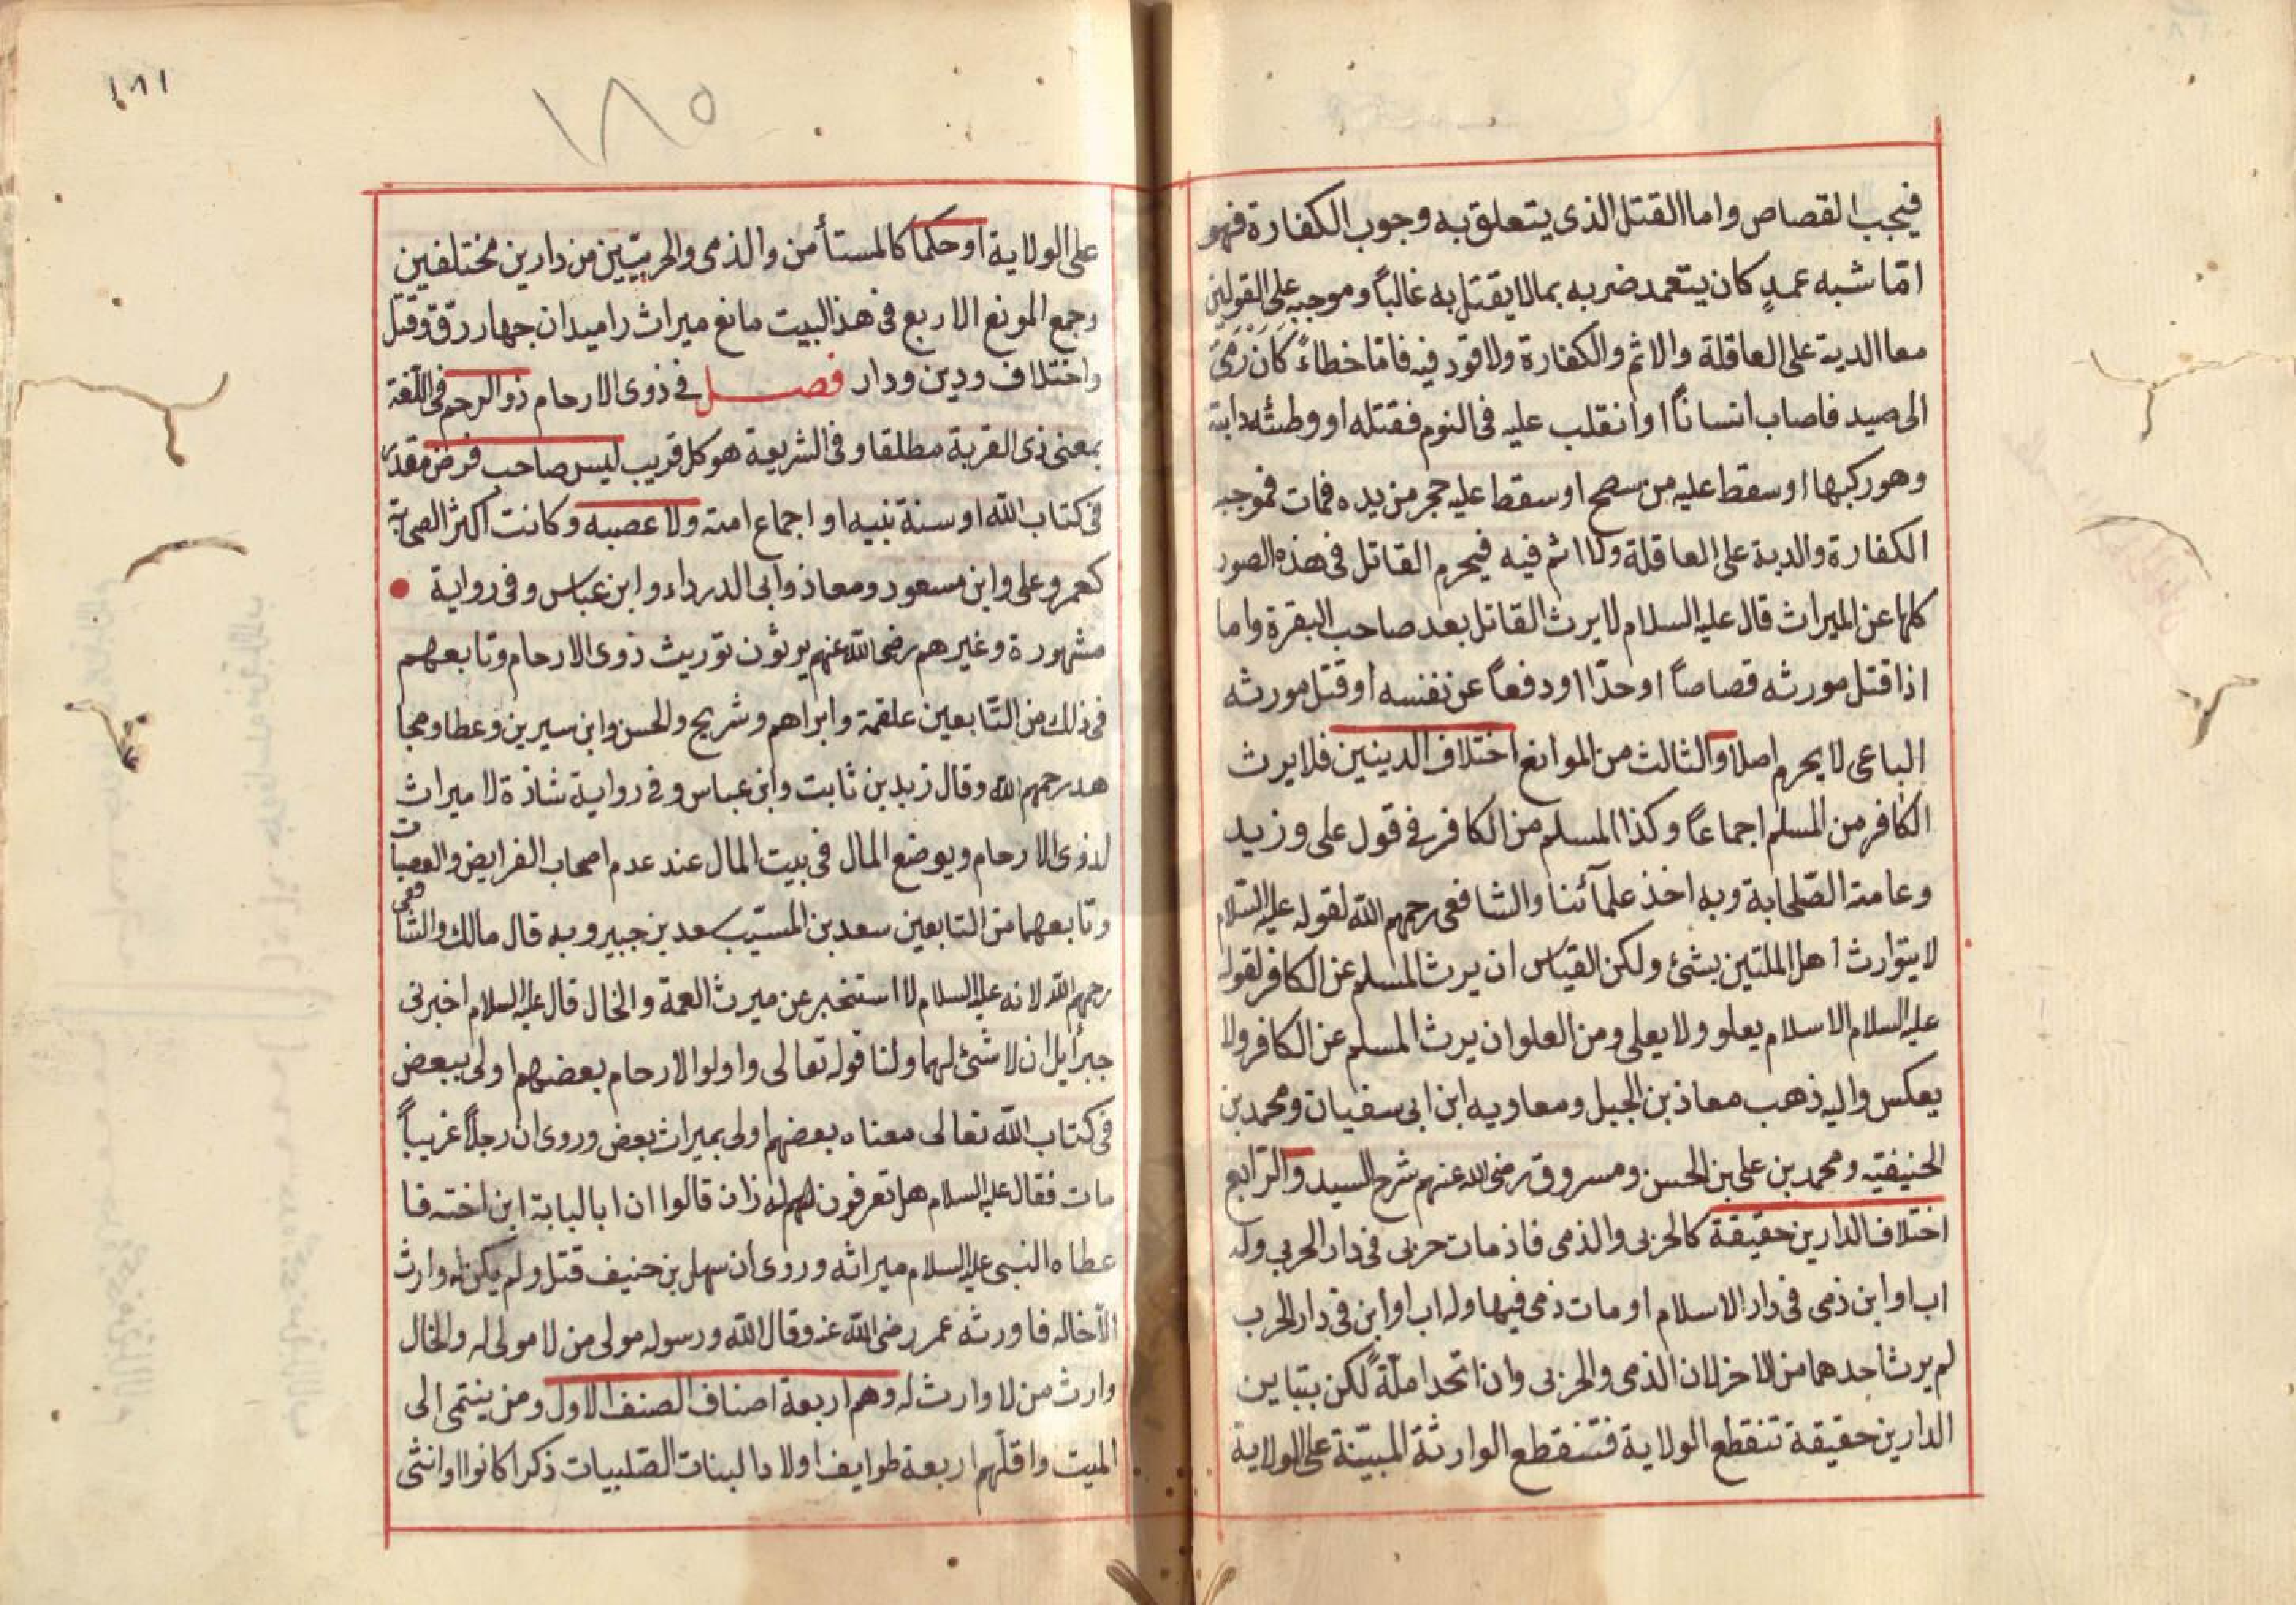 فيجب القصاص واما القتل الذى يتعلق به وجوب الكفارة فهو
امّا شبه عمدٍ كان يتعمد ضربه بما لا يقتل به غالباً وموجبه على القولين
معا الدية على العاقلة والاثم والكفارة ولا قود فيه فامّا خطاءً كَانَ رَمَىَ
الى صيد فاصاب انساناً او انقلب عليه فى النوم فقتله او وطئه دابة
وهو ركبها او سقط عليه من سطح او سقط عليه حجر من يده فمات فموجبه
الكفارة والدية على العاقلة ولا اثم فيه فيحرم القاتل فى هذه الصور
كلها عن الميراث قال عليه السلام لا يرث القاتل بعد صاحب البقرة واما
اذا قتل مورثه قصاصاً او حدّا او دفعاً عن نفسه او قتل مورثه
الباعى لا يحرم اصلا والثالث من الموانع اختلاف الدينين فلا يرث
الكافر من المسلم اجماعاً وكذا المسلم من الكافر فى قول على وزيد
وعامة الصّلحابة وبه اخذ علمآئنا والشافعى رحمهم الله لقوله عليه السّلام
لا يتوارث اهل الملتين بشئ ولكن القياس ان يرث المسلم عن الكافر لقوله
عليه السلام الاسلام يعلو ولا يعلى ومن العلو ان يرث المسلم عن الكافر ولا
يعكس واليه ذهب معاذ بن الجبل ومعاويه ابن ابى سفيان ومحمد بن
الحنيفتيه ومحمد بن على بن الحسن ومسروق رضى الله عنهم شرح السيد والرّابع
اختلاف الدارين حقيقة كالحربى والذمى فاذ مات حربى فى دار الحربى وله
اب او ابن ذمى فى دار الاسلام او مات ذمى فيها وله اب او ابن فى دار الحرب
لم يرث احدهما من الاخر لان الذمى والحربى وان اتحدا ملّةً لكن بتباين
الدارين حقيقة تنقطع الولاية فتنقطع الوارثة المبيّنة على الولاية
١٨١
١٨٥
على الولاية او حكماً كالمستأمن والذمى والحربيّين من دارين مختلفين
وجمع المونع الاربع فى هذ البيت مانع ميراث را ميدان جهار رقّ وقتل
واختلاف ودين ودار فصل فى ذوى الارحام ذو الرحم فى اللّغة
بمعنى ذى القربة مطلقا وفى الشريعة هو كل قريب ليس صاحب فرض مقدر
فى كتاب الله او سنة نبيه او اجماع امته ولا عصبه وكانت اكثر الصحابة
كعمر وعلى وابن مسعود ومعاذ وابى الدرداء وابن عباس وفى رواية
مشهورة وغيرهم رضى الله عنهم يرثون توريث ذوى الارحام وتابعهم
فى ذلك من التّابعين علقمة وابراهم وشريح والحسن وابن سيرين وعطا ومجا
هد رحمهم الله وقال زيد بن ثابت وابن عباس وفى رواية شاذة لا ميراث
لذوى الارحام ويوضع المال فى بيت المال عند عدم اصحاب الفرايض والعصبات
وتابعهما من التابعين سعد بن المسيّب سعد بن جبير وبه قال مالك والشّافعى
رحمهم الله لانه عليه السلام لا استخبر عن ميرث العمة والخال قال عليه السلام اخبرنى
جبرأيل ان لا شئ لهما ولنا قوله تعالى واولوا الارحام بعضهم اولى ببعض
فى كتاب الله تعالى معناه بعضهم اولى بميراث بعض وروى ان رجلاً غريباً
مات فقال عليه السلام هل تعرفون قالوا ان ابا لبابة ابن اخته فا
عطاه النبى عليه السلام ميراثه وروى ان سهل بن حنيف قتل ولم يكن له وارث
الاّ خاله فاورثه عمر رضى الله عنه وقال الله ورسوله مولى من لا مولى له والخال
وارث من لا وارث له وهم اربعة اصناف الصنف الاول ومن ينتمى الى
الميت واقلّهم اربعة طوايف اولاد البنات الصّلبيات ذكرا كانوا او انثى